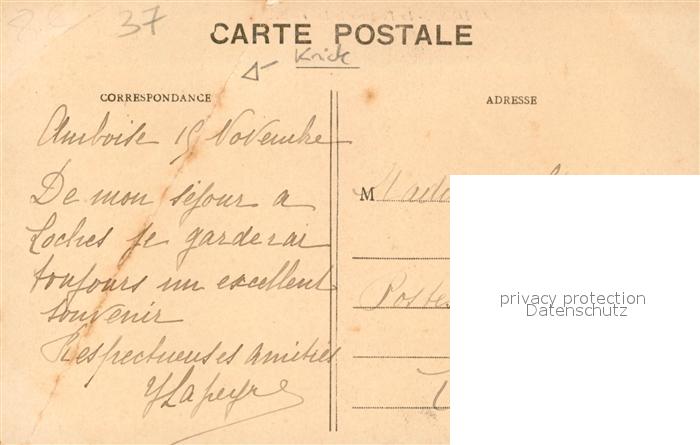 37
CARTE POSTALE
Knick
CORRESPONDANCE
Amboise 15 Novembre
De mon séjour a
Loches je garderai
toujours un excellent
souvenir
Respectueuses amitiés
YLapeyre
ADRESSE
M
Postes
privacy protection
Datenschutz